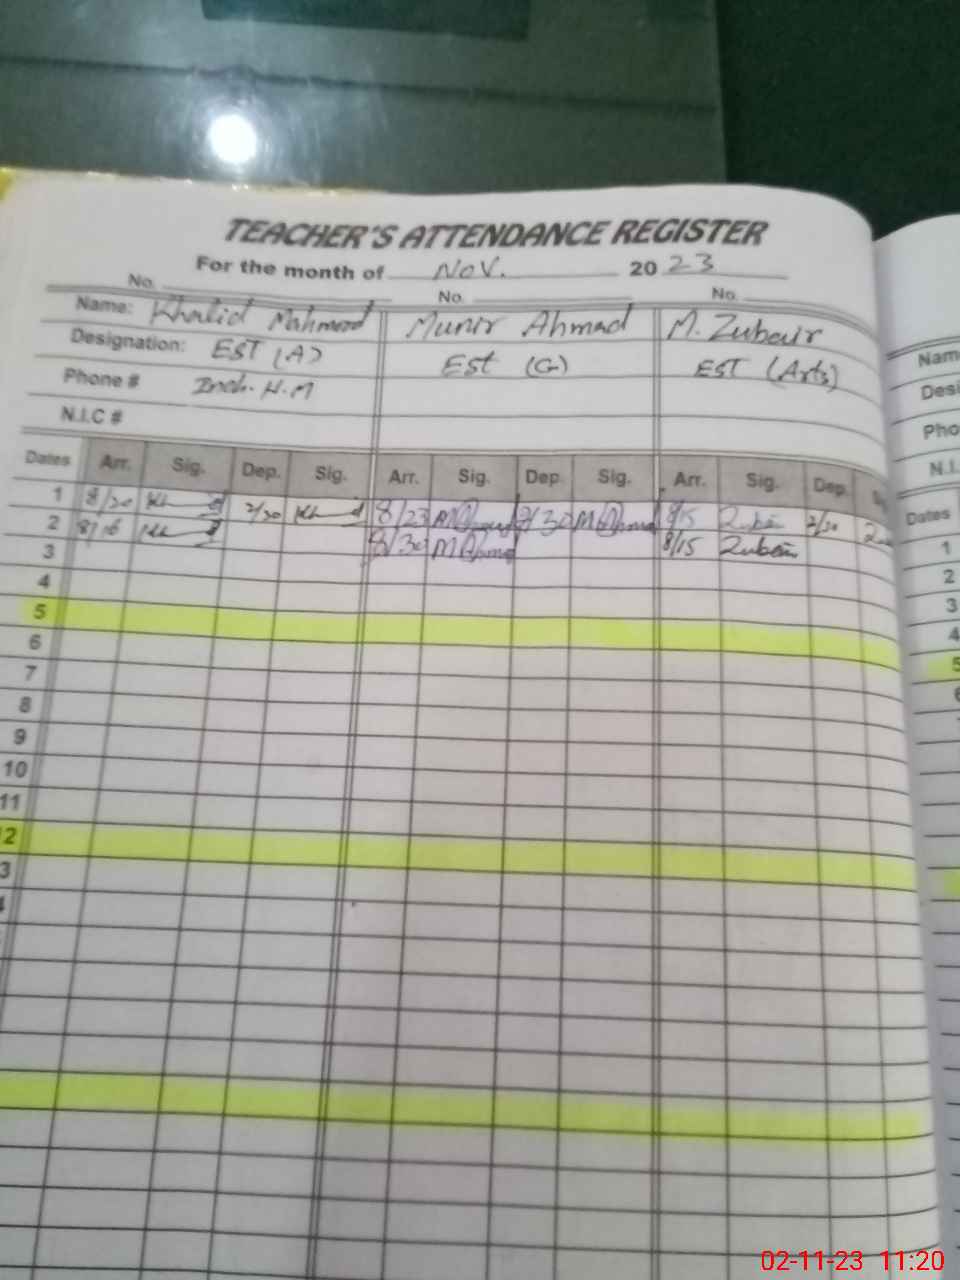 TEACHER'S ATTENDANCE REGISTER
For the month of Nov. 2023
No. No. No.
Name: Khalid Mahmood Munir Ahmad M. Zubair
Designation: EST (A) Est (G) EST (Arts)
Phone # Inch. H.M
N.I.C #
Dates Arr. Sig. Dep. Sig. Arr. Sig. Dep. Sig. Arr. Sig. Dep.
1 8/20 2/30 8/23 M Ahmad 2/30 M Ahmad 8/15 Zubair 2/30
2 8/16 8/30 M Ahmad 8/15 Zubair
3
4
5
6
7
8
9
10
11
2
3
Nam
Desi
Pho
N.I.
Dates
1
2
3
4
5
6
02-11-23 11:20